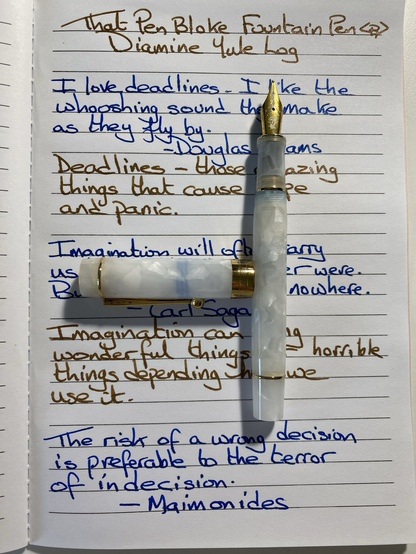 That Pen Bloke Fountain Pen <B>
Diamine Yule Log
I love deadlines. I like the
whooshing sound they make
as they fly by.
- Douglas Adams
Deadlines - those amazing
things that cause
and panic.
Imagination will often carry
us were.
nowhere.
- Carl Sagan
Imagination can
wonderful things horrible
things depending we
use it.
The risk of a wrong decision
is preferable to the terror
of indecision.
- Maimonides